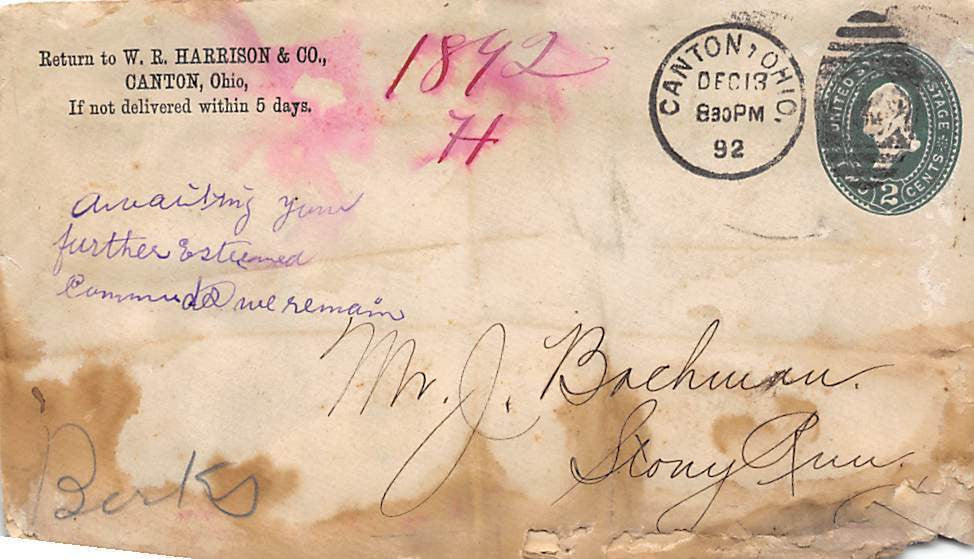 Return to W. R. HARRISON & CO.,
CANTON, Ohio,
If not delivered within 5 days.
1892
H
CANTON, OHIO.
DEC 13
830PM
92
UNITED STATES POSTAGE
TWO CENTS
2
awaiting your
further Esteemed
we remain
Mr. J. Bachman.
Stony Run.
Berks